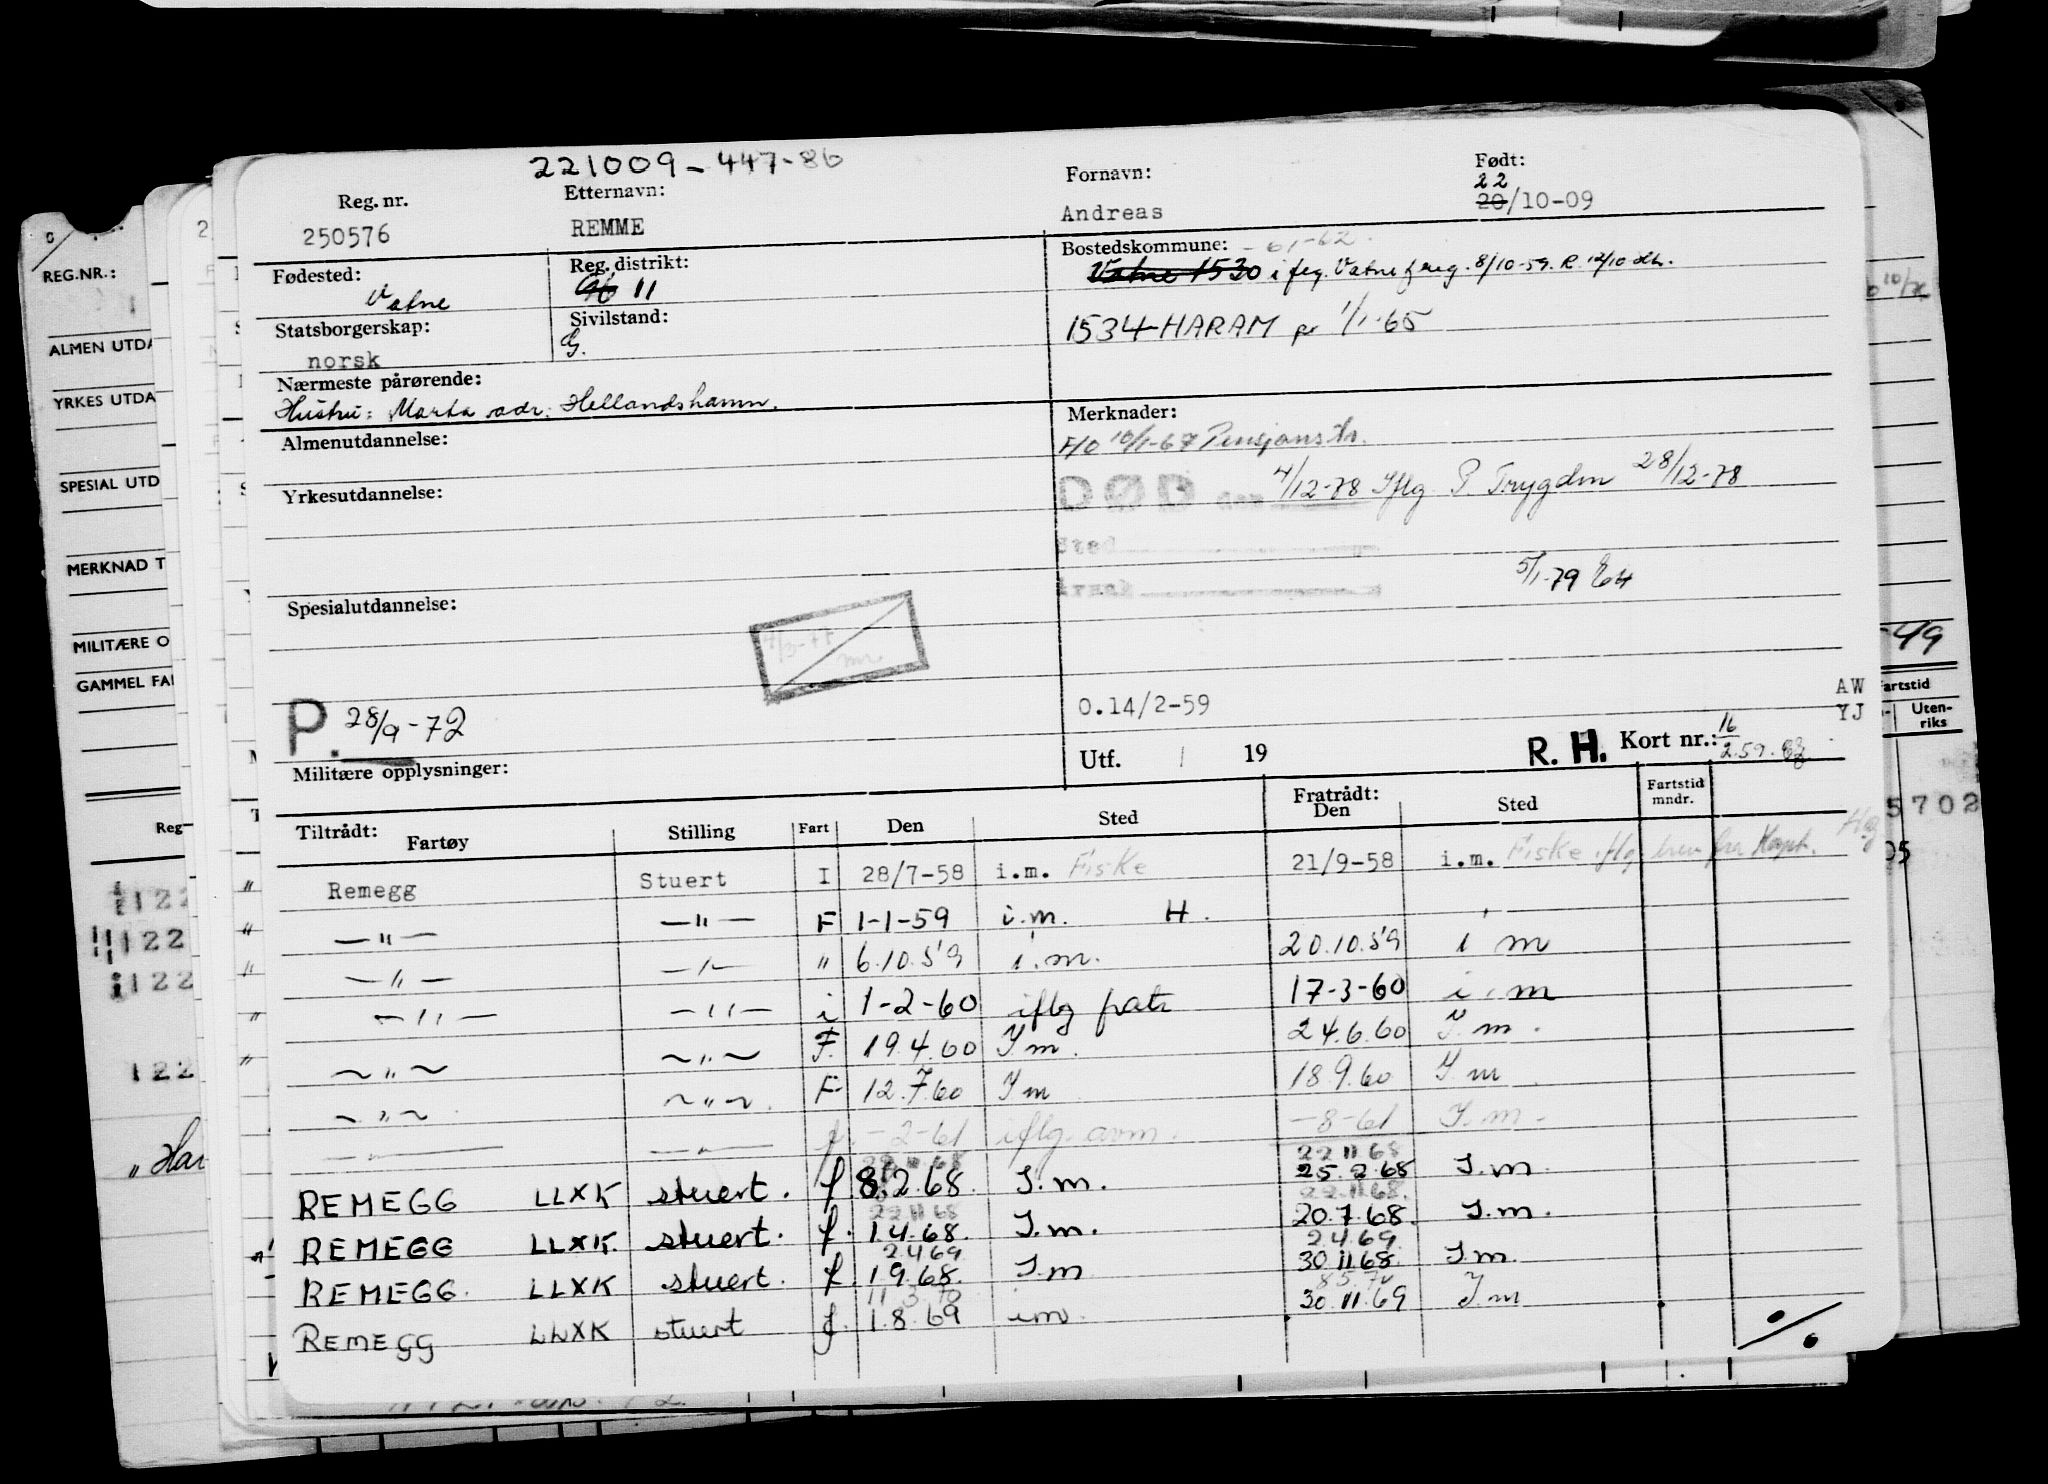 221009-447-86
Reg. nr. Etternavn: Fornavn: Født:
22
250576 REMME Andreas 20/10-09
Fødested: Reg. distrikt: Bostedskommune: -61-62.
Vatne 11 Vatne 1530 i flg. Vatne f.reg. 8/10-59. R. 12/10
Statsborgerskap: Sivilstand:
norsk G. 1534-HARAM pr 1/1-65
Nærmeste pårørende:
Hustru: Marta adr. Hellandshamn.
Almenutdannelse: Merknader:
F/O 10/1-67 Pensjonstr.
Yrkesutdannelse: DØD den 4/12-78 Iflg P. Trygden 28/12-78
Sted
Årsak 5/1-79
Spesialutdannelse:
P. 28/9-72
O.14/2-59 AW
YJ
Utf. / 19 R. H. Kort nr.: 16
2.59.
Militære opplysninger:
Tiltrådt: Fartøy Stilling Fart Den Sted Fratrådt: Den Sted Fartstid mndr.
Remegg Stuert I 28/7-58 i.m. Fiske 21/9-58 i.m. Fiske iflg. brev fra Kapt.
—"— —"— F 1-1-59 i.m. H.
—"— —"— " 6.10.59 i.m. 20.10.59 i m
—"— —"— i 1-2-60 iflg fratr 17-3-60 i.m
—"— —"— F. 19.4.60 I m. 24.6.60 I.m.
—"— —"— F 12.7.60 I m 18.9.60 I m
—"— —"— f. -2-61 iflg. avm. -8-61 I.m.
22 11 68
REMEGG LLXK stuert. f 8.2.68. I.m. 25.2.68 I.m.
22 11 68 22.11.68.
REMEGG LLXK. stuert. f. 1.4.68. I.m. 20.7.68. I.m.
2469 2.4.69
REMEGG. LLXK stuert. f. 1.9.68. I.m 30.11.68. I.m
11 3 70 8.5.70
REMEGG LLXK stuert f. 1.8.69 i m. 30.11.69 I.m
%
REG.NR.:
ALMEN UTDA
YRKES UTDA
SPESIAL UTD
MERKNAD T
MILITÆRE O
GAMMEL FA
Reg
122
122
122
122
"Har
-49
Fartstid
Uten-
riks
5702
05